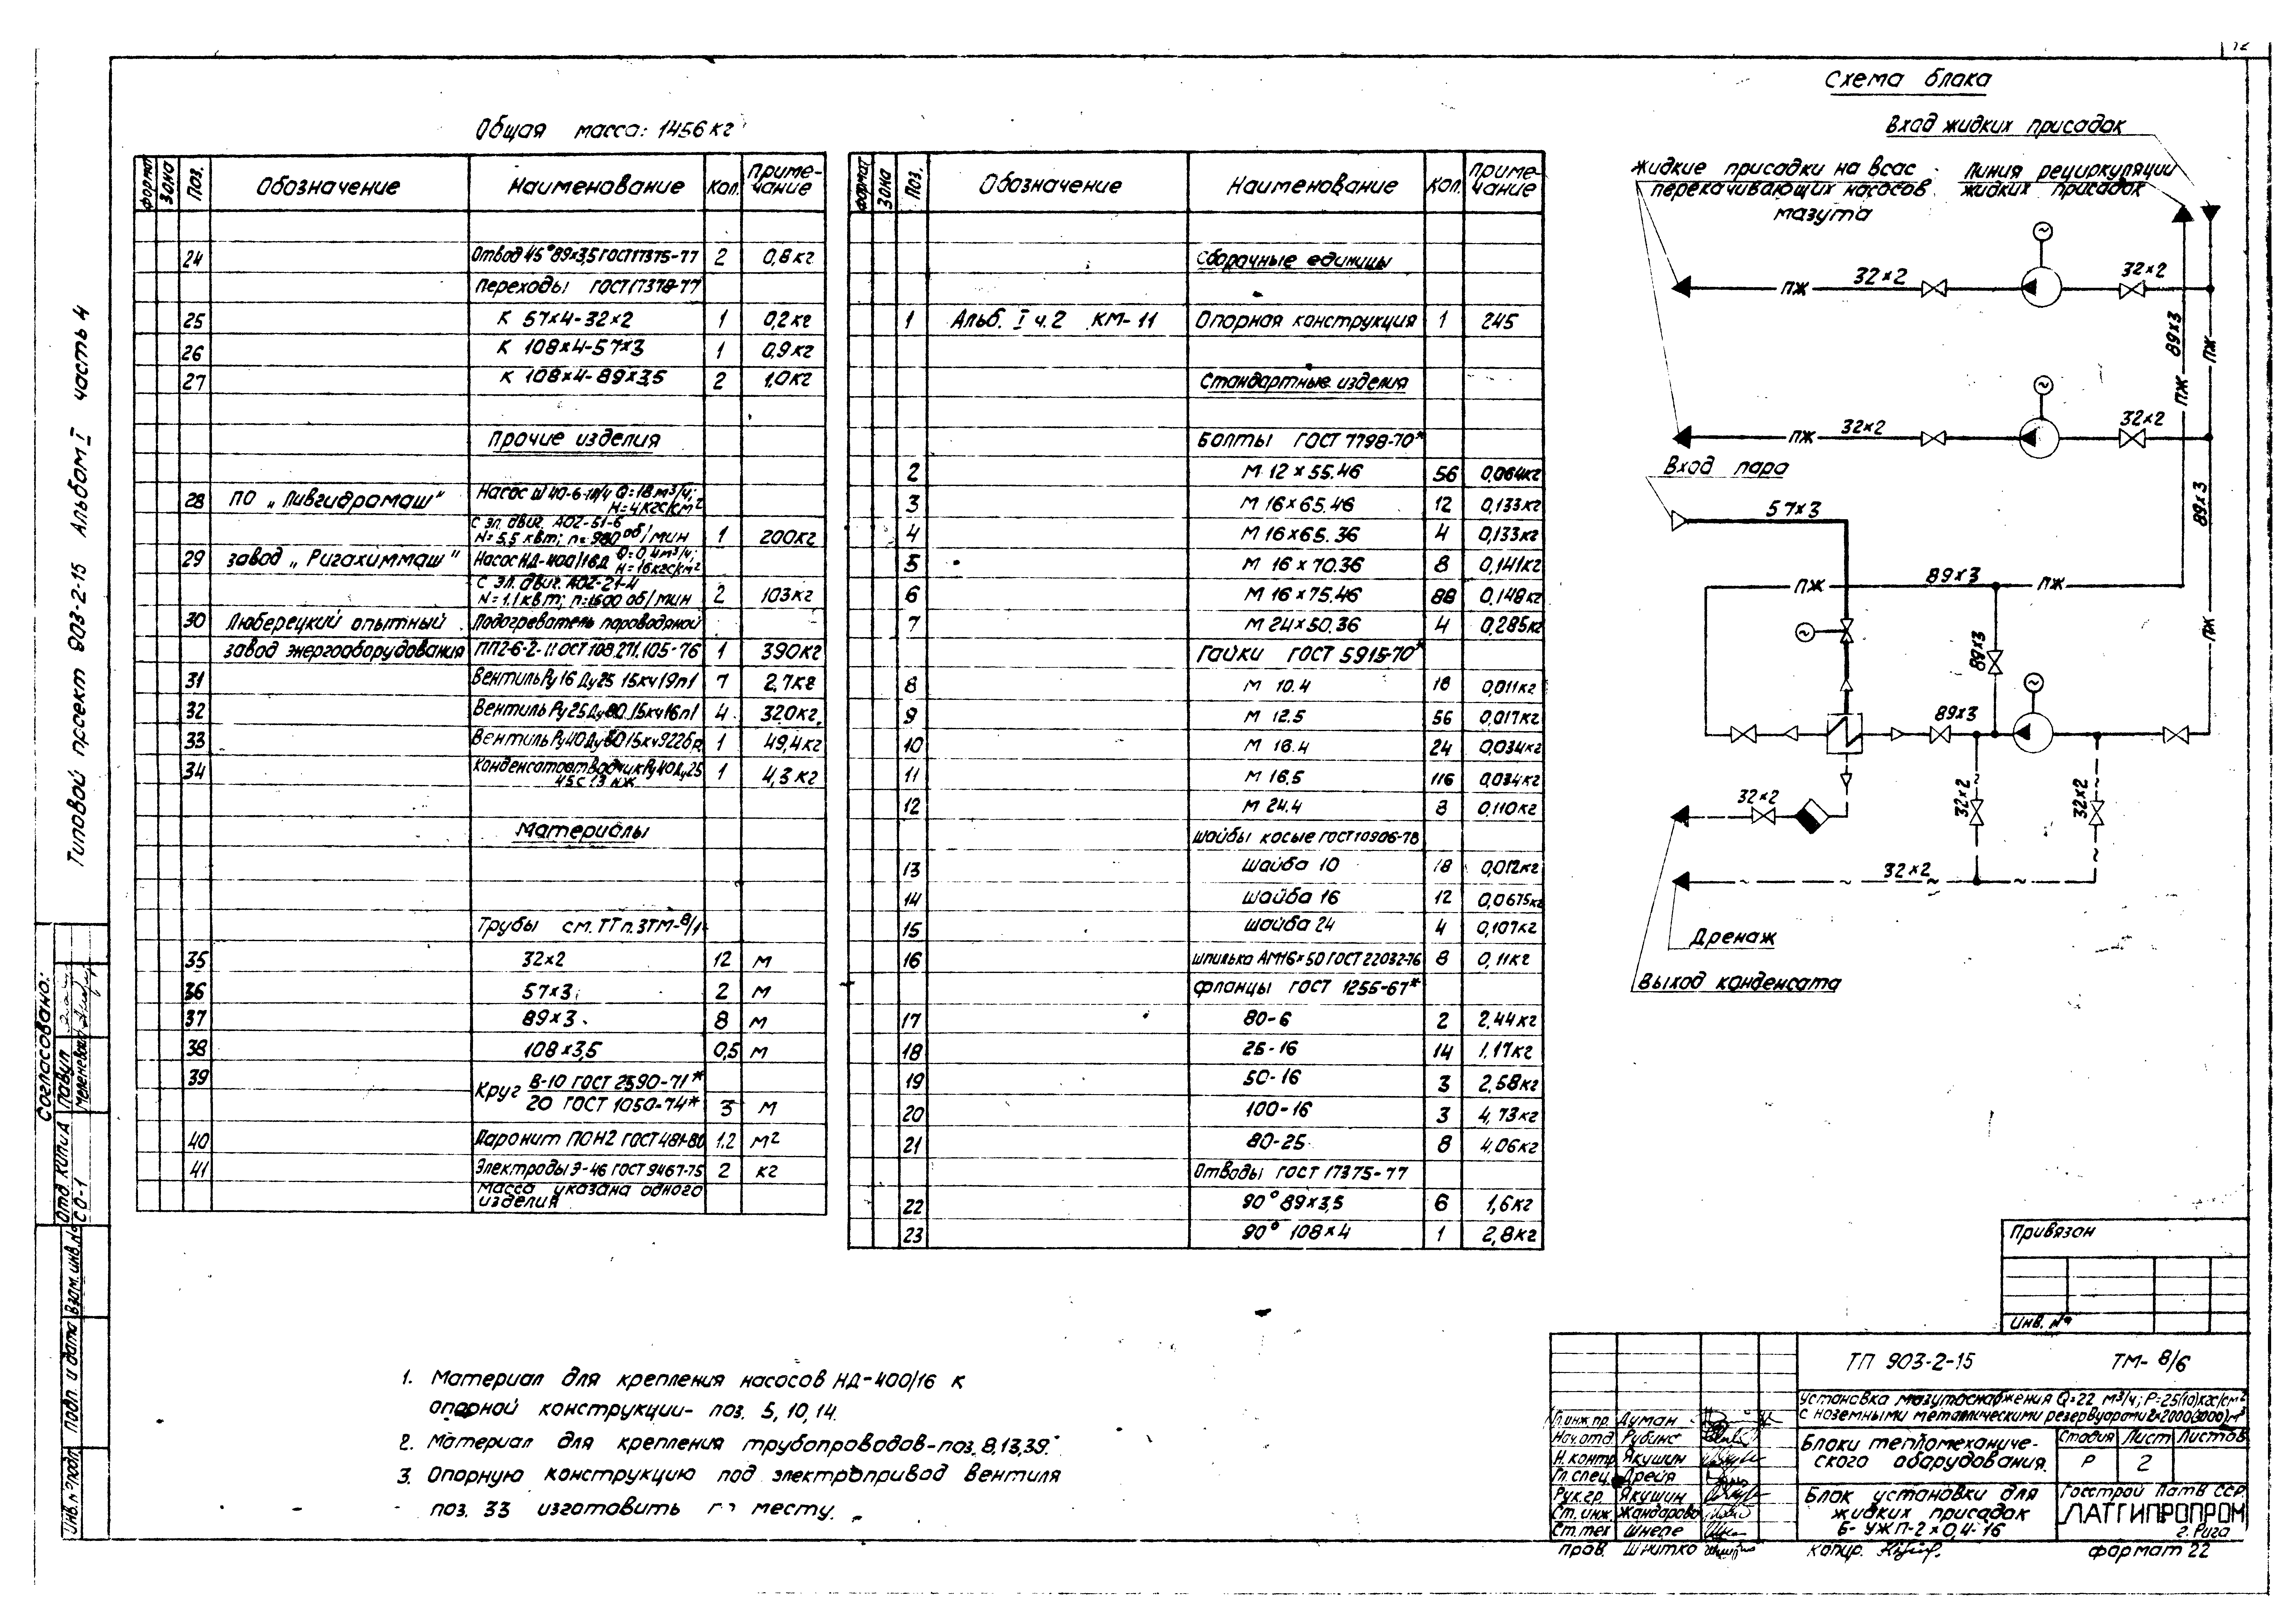 12
Типовой проект 903-2-15 Альбом I часть 4
Общая масса: 1456 кг
формат Зона Поз. Обозначение Наименование Кол. Приме-чание
24 Отвод 45° 89×3,5 ГОСТ 17375-77 2 0,8кг
Переходы ГОСТ 17378-77
25 К 57×4-32×2 1 0,2кг
26 К 108×4-57×3 1 0,9кг
27 К 108×4-89×3,5 2 1.0кг
Прочие изделия
28 ПО „Ливгидромаш" Насос Ш 40-6-18/4 Q=18 м³/ч;
H=4кгс/см²
с эл. двиг. АО2-51-6
N=5,5 квт; n=980 об/мин 1 200кг
29 завод „Ригахиммаш" Насос НД-400/16Д Q=0,4м³/ч;
H=16кгс/см²
с эл. двиг. АО2-21-4
N=1.1 квт; n=1500 об/мин 2 103кг
30 Люберецкий опытный Подогреватель пароводяной
завод энергооборудования ПП2-6-2-II ОСТ 108.271.105-76 1 390кг
31 Вентиль Ру16 Ду25 15кч19п1 7 2,7кг
32 Вентиль Ру25 Ду80 15кч16п1 4 32.0кг
33 Вентиль Ру40 Ду50 15кч922бр 1 49,4кг
34 Конденсатоотводчик Ру40 Ду25
45с13нж 1 4,3 кг
Материалы
Трубы см. ТТ п.3 ТМ-8/1
35 32×2 12 м
36 57×3 2 м
37 89×3 8 м
38 108×3,5 0,5 м
39 Круг В-10 ГОСТ 2590-71*
20 ГОСТ 1050-74* 3 м
40 Паронит ПОН2 ГОСТ 481-80 1.2 м²
41 Электроды Э-46 ГОСТ 9467-75 2 кг
Масса указана одного
изделия
формат Зона Поз. Обозначение Наименование Кол. Приме-чание
Сборочные единицы
1 Альб. I ч.2 КМ-11 Опорная конструкция 1 245
Стандартные изделия
Болты ГОСТ 7798-70*
2 М 12×55.46 56 0,064кг
3 М 16×65.46 12 0,133кг
4 М 16×65.36 4 0,133кг
5 М 16×70.36 8 0,141кг
6 М 16×75.46 88 0,148кг
7 М 24×50.36 4 0,285кг
Гайки ГОСТ 5915-70*
8 М 10.4 18 0,011кг
9 М 12.5 56 0,017кг
10 М 16.4 24 0,034кг
11 М 16.5 116 0,034кг
12 М 24.4 8 0,110кг
Шайбы косые ГОСТ 10906-78
13 Шайба 10 18 0,012кг
14 Шайба 16 12 0,0675кг
15 Шайба 24 4 0,107кг
16 Шпилька АМ16×50 ГОСТ 22032-76 8 0,11кг
Фланцы ГОСТ 1255-67*
17 80-6 2 2.44кг
18 25-16 14 1.17кг
19 50-16 3 2,58кг
20 100-16 3 4,73кг
21 80-25 8 4,06кг
Отводы ГОСТ 17375-77
22 90° 89×3,5 6 1,6кг
23 90° 108×4 1 2,8кг
Схема блока
Вход жидких присадок
Жидкие присадки на всас
перекачивающих насосов
мазута
Линия рециркуляции
жидких присадок
ПЖ 32×2 32×2
89×3 ПЖ
ПЖ 32×2 32×2
ПЖ
Вход пара
57×3
89×3
ПЖ 89×3 ПЖ
89×3
ПЖ
89×3
32×2
32×2
32×2
32×2
Дренаж
Выход конденсата
1. Материал для крепления насосов НД-400/16 к
опорной конструкции- поз. 5, 10, 14.
2. Материал для крепления трубопроводов-поз. 8,13,39.
3. Опорную конструкцию под электропривод вентиля
поз. 33 изготовить по месту.
Согласовано:
Отд. КИПиА Павул
СО-1
Инв.№подл. Подп. и дата Взам.инв.№
Привязан
Инв. №
ТП 903-2-15 ТМ- 8/6
Установка мазутоснабжения Q=22 м³/ч; Р=25(10)кгс/см²
с наземными металлическими резервуарами 2×2000(3000)м³
Гл.инж.пр. Думан
Нач.отд Рубинс
Н.контр Якушин
Гл.спец. Дрейя
Рук.гр. Якушин
Ст.инж. Жандарова
Ст.тех Шнепе
Пров. Шнитко
Блоки тепломеханиче-
ского оборудования.
Стадия Лист Листов
Р 2
Блок установки для
жидких присадок
Б-УЖП-2×0,4-16
Госстрой Латв ССР.
ЛАТГИПРОПРОМ
г. Рига
Копир.
формат 22